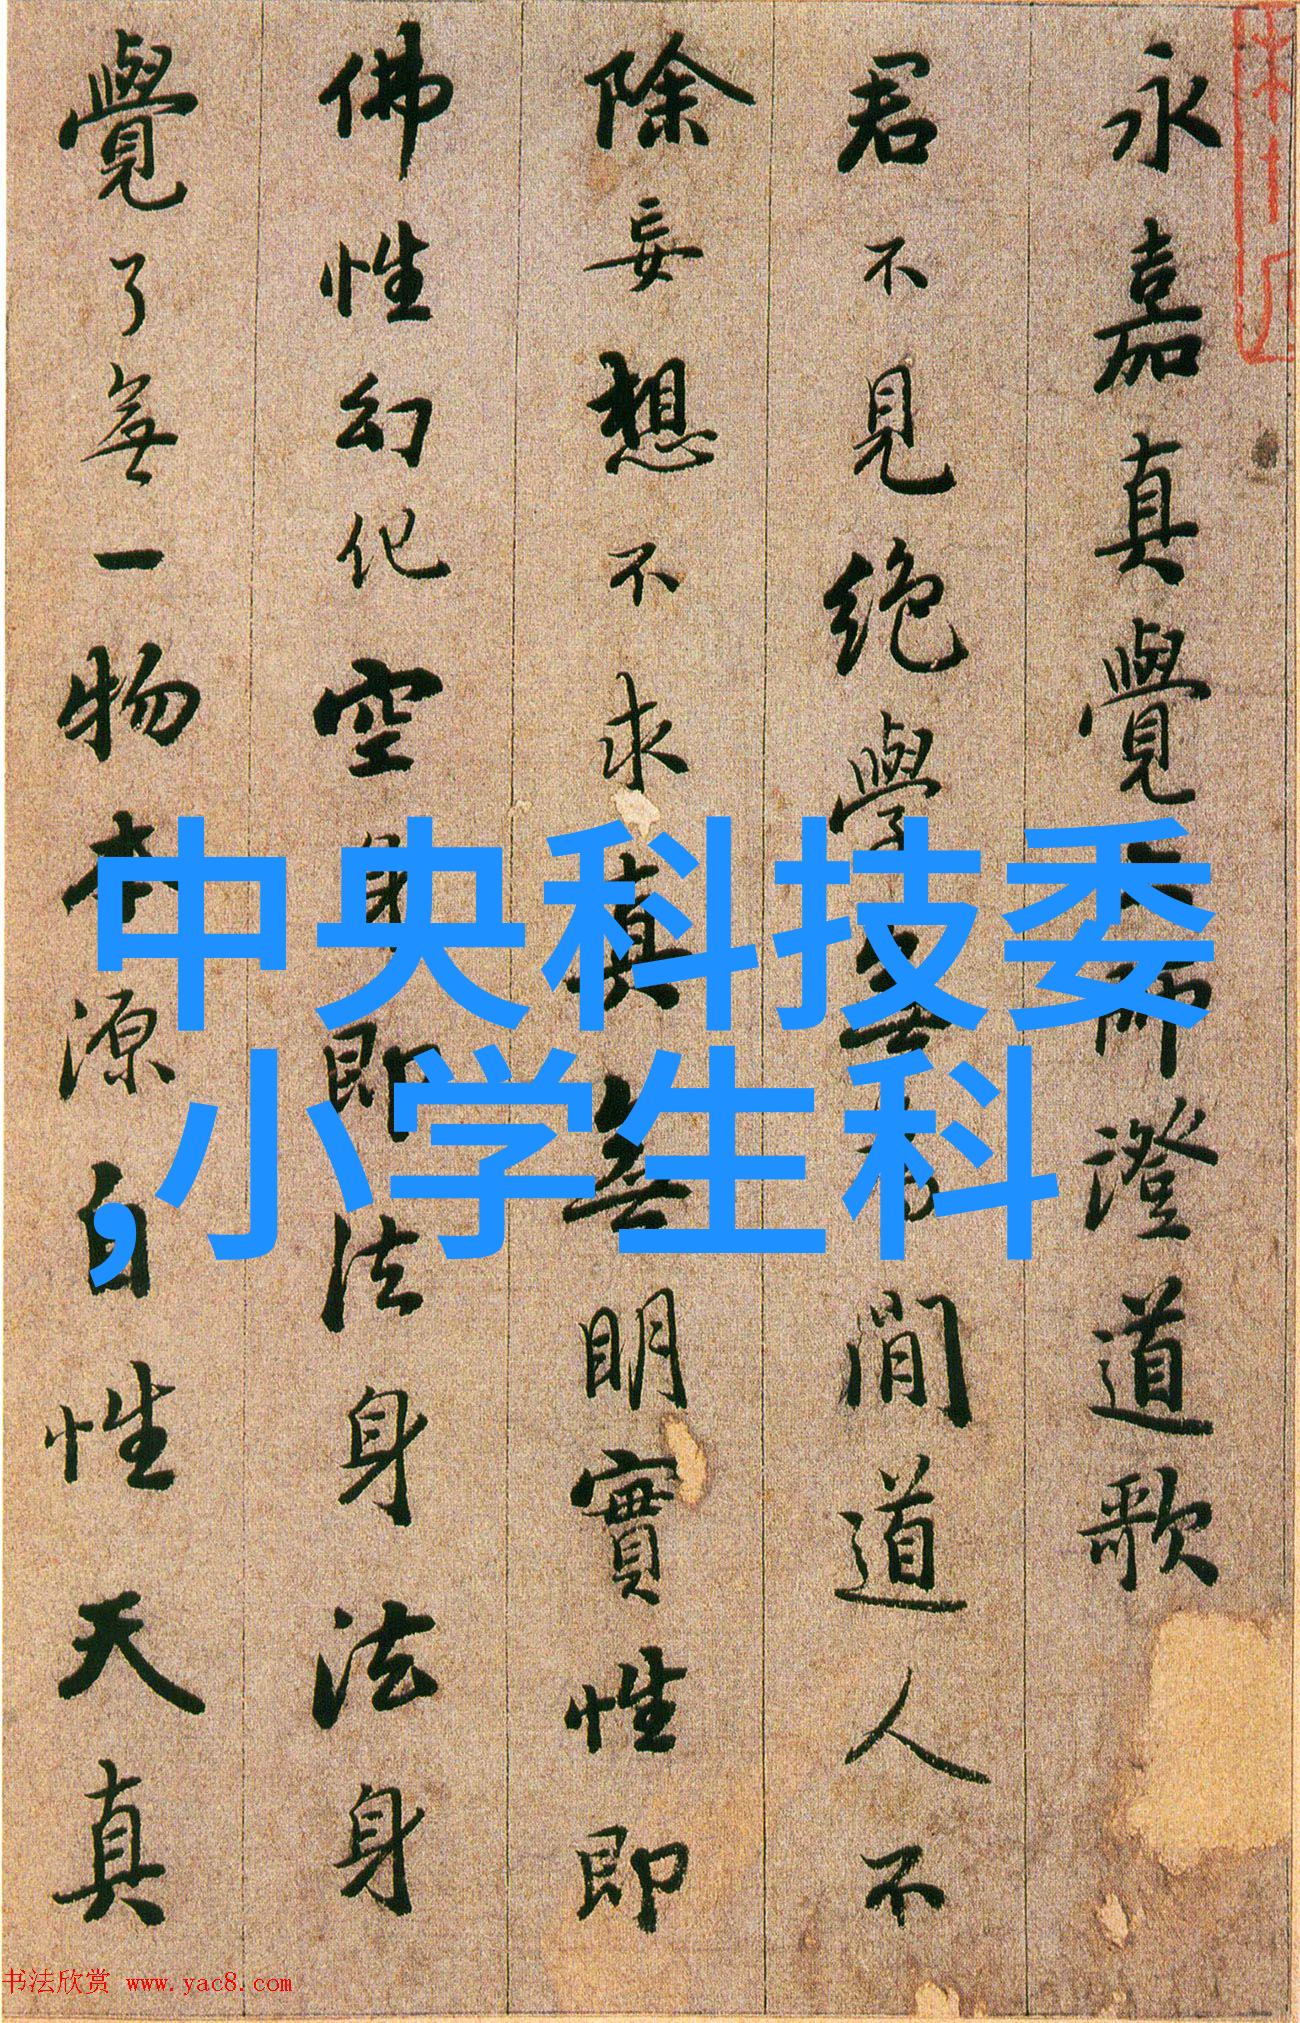 永嘉真覺大師澄道歌
君不見絶學無為閒道人不
除妄想不求真無明實性即
佛性幻化空身即法身法身
覺了無一物本源自性天真
中央科技委
,小学生科
书法欣赏 www.yac8.com